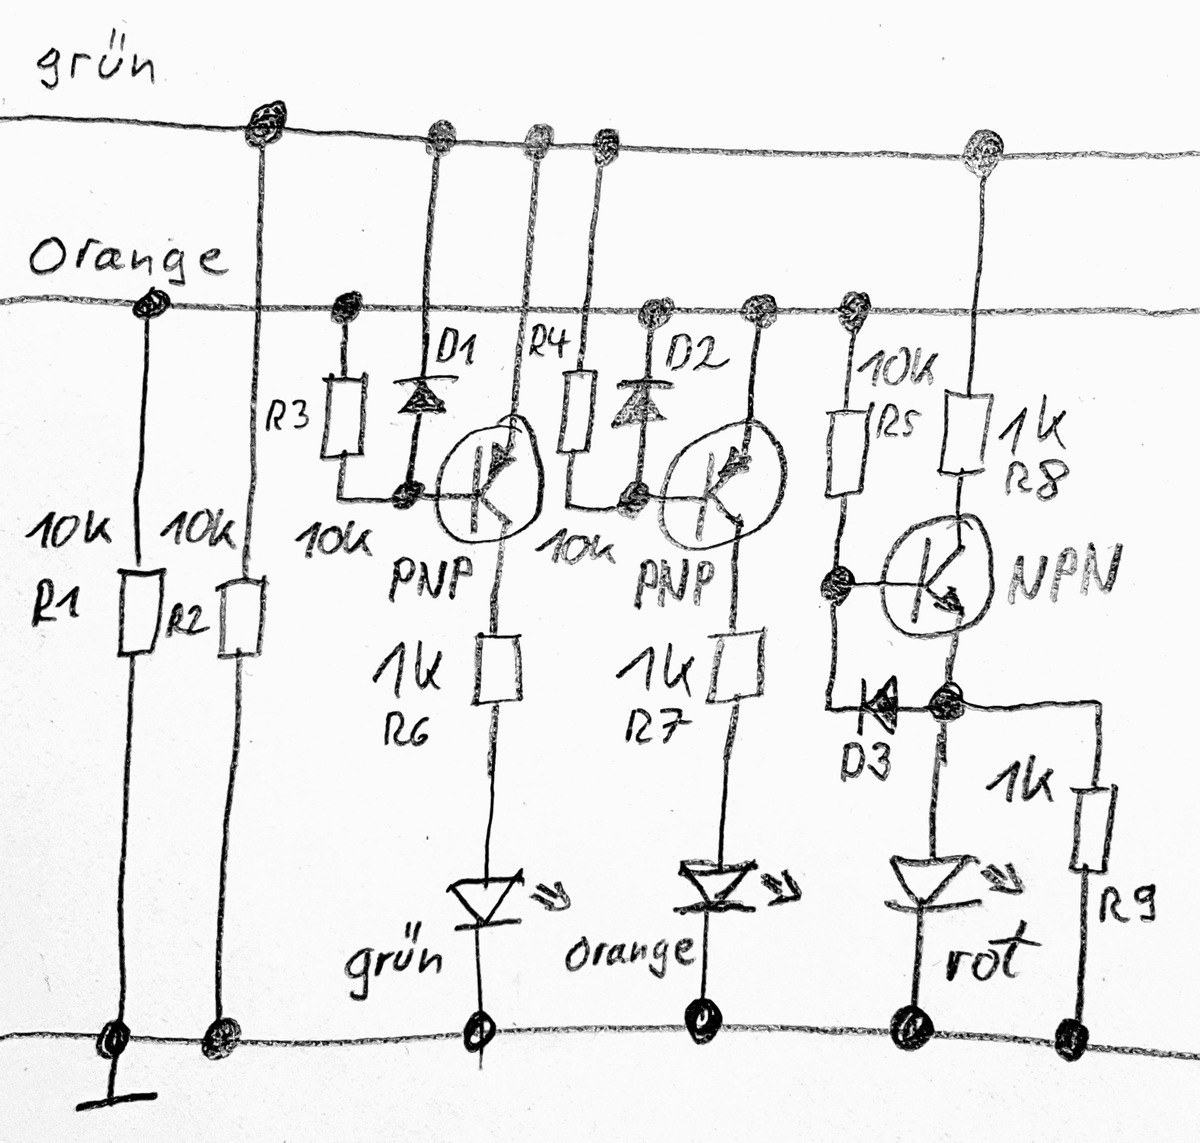 grün
Orange
D1
R4
D2
10k
R5
R3
1k
R8
10k
R1
10k
R2
10k
PNP
10k
PNP
NPN
1k
R6
1k
R7
D3
1k
R9
grün
orange
rot